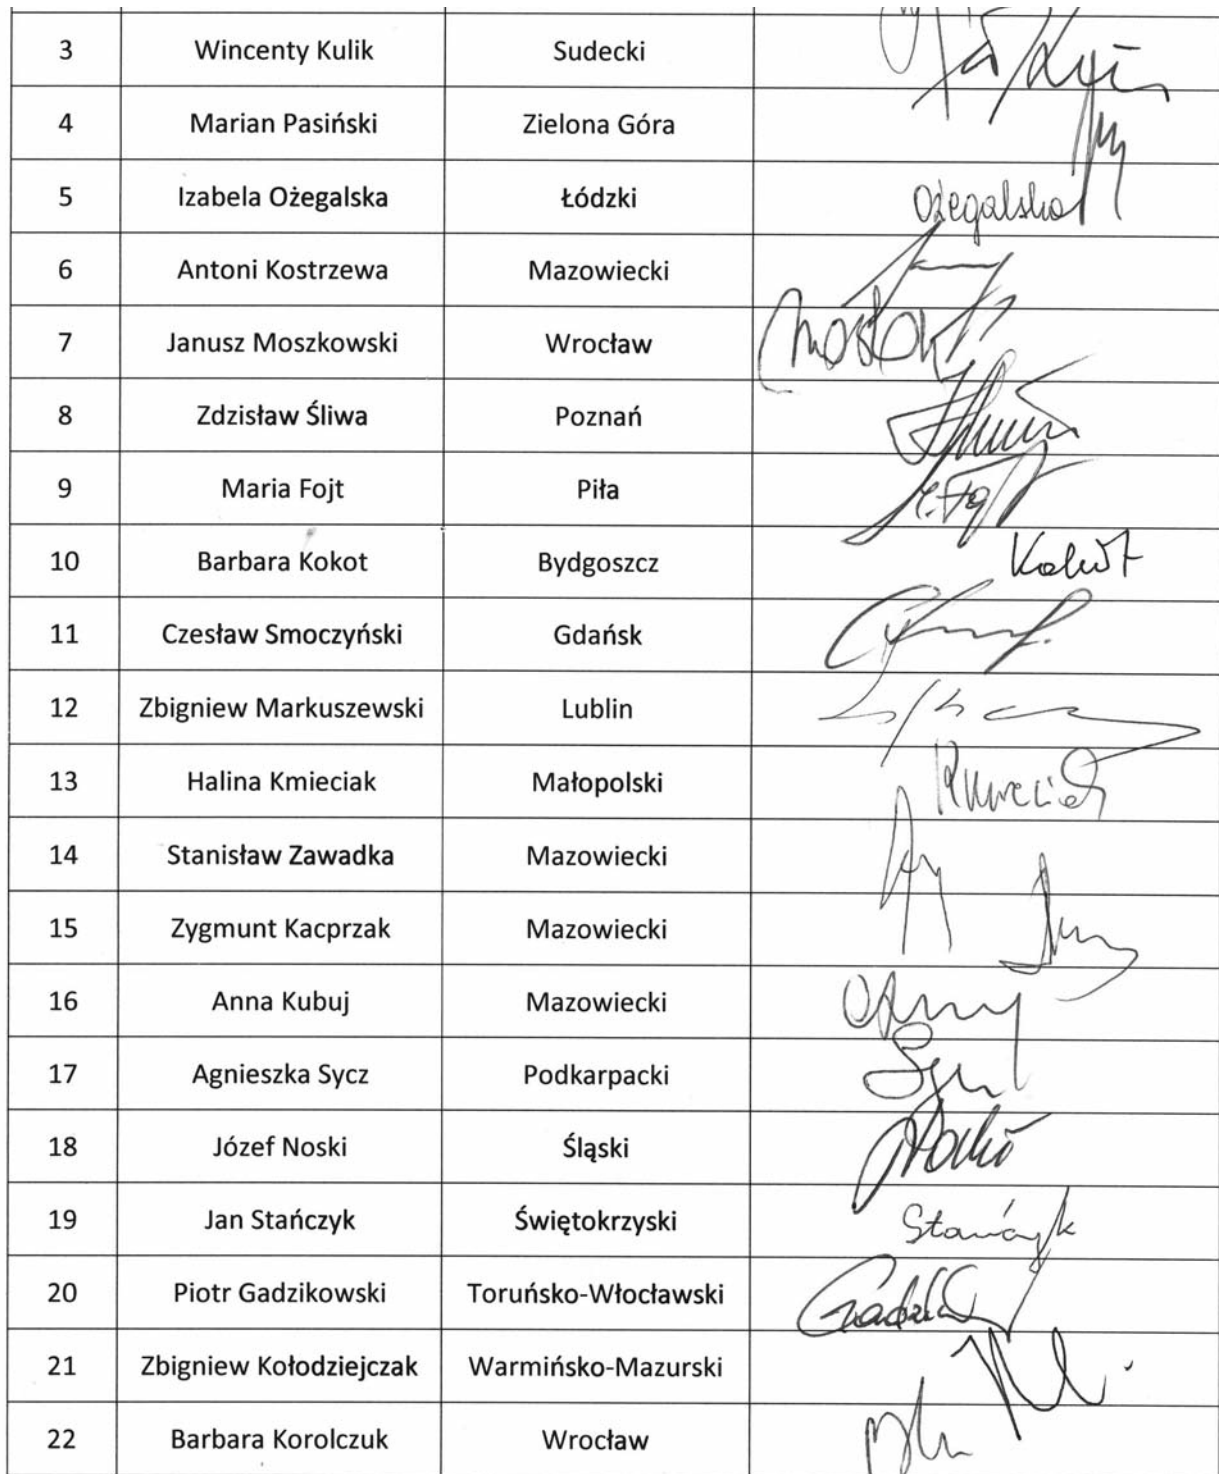 3 Wincenty Kulik Sudecki
4 Marian Pasiński Zielona Góra
5 Izabela Ożegalska Łódzki Ożegalska
6 Antoni Kostrzewa Mazowiecki
7 Janusz Moszkowski Wrocław
8 Zdzisław Śliwa Poznań
9 Maria Fojt Piła
10 Barbara Kokot Bydgoszcz Kokot
11 Czesław Smoczyński Gdańsk
12 Zbigniew Markuszewski Lublin
13 Halina Kmieciak Małopolski
14 Stanisław Zawadka Mazowiecki
15 Zygmunt Kacprzak Mazowiecki
16 Anna Kubuj Mazowiecki
17 Agnieszka Sycz Podkarpacki
18 Józef Noski Śląski
19 Jan Stańczyk Świętokrzyski Stańczyk
20 Piotr Gadzikowski Toruńsko-Włocławski
21 Zbigniew Kołodziejczak Warmińsko-Mazurski
22 Barbara Korolczuk Wrocław